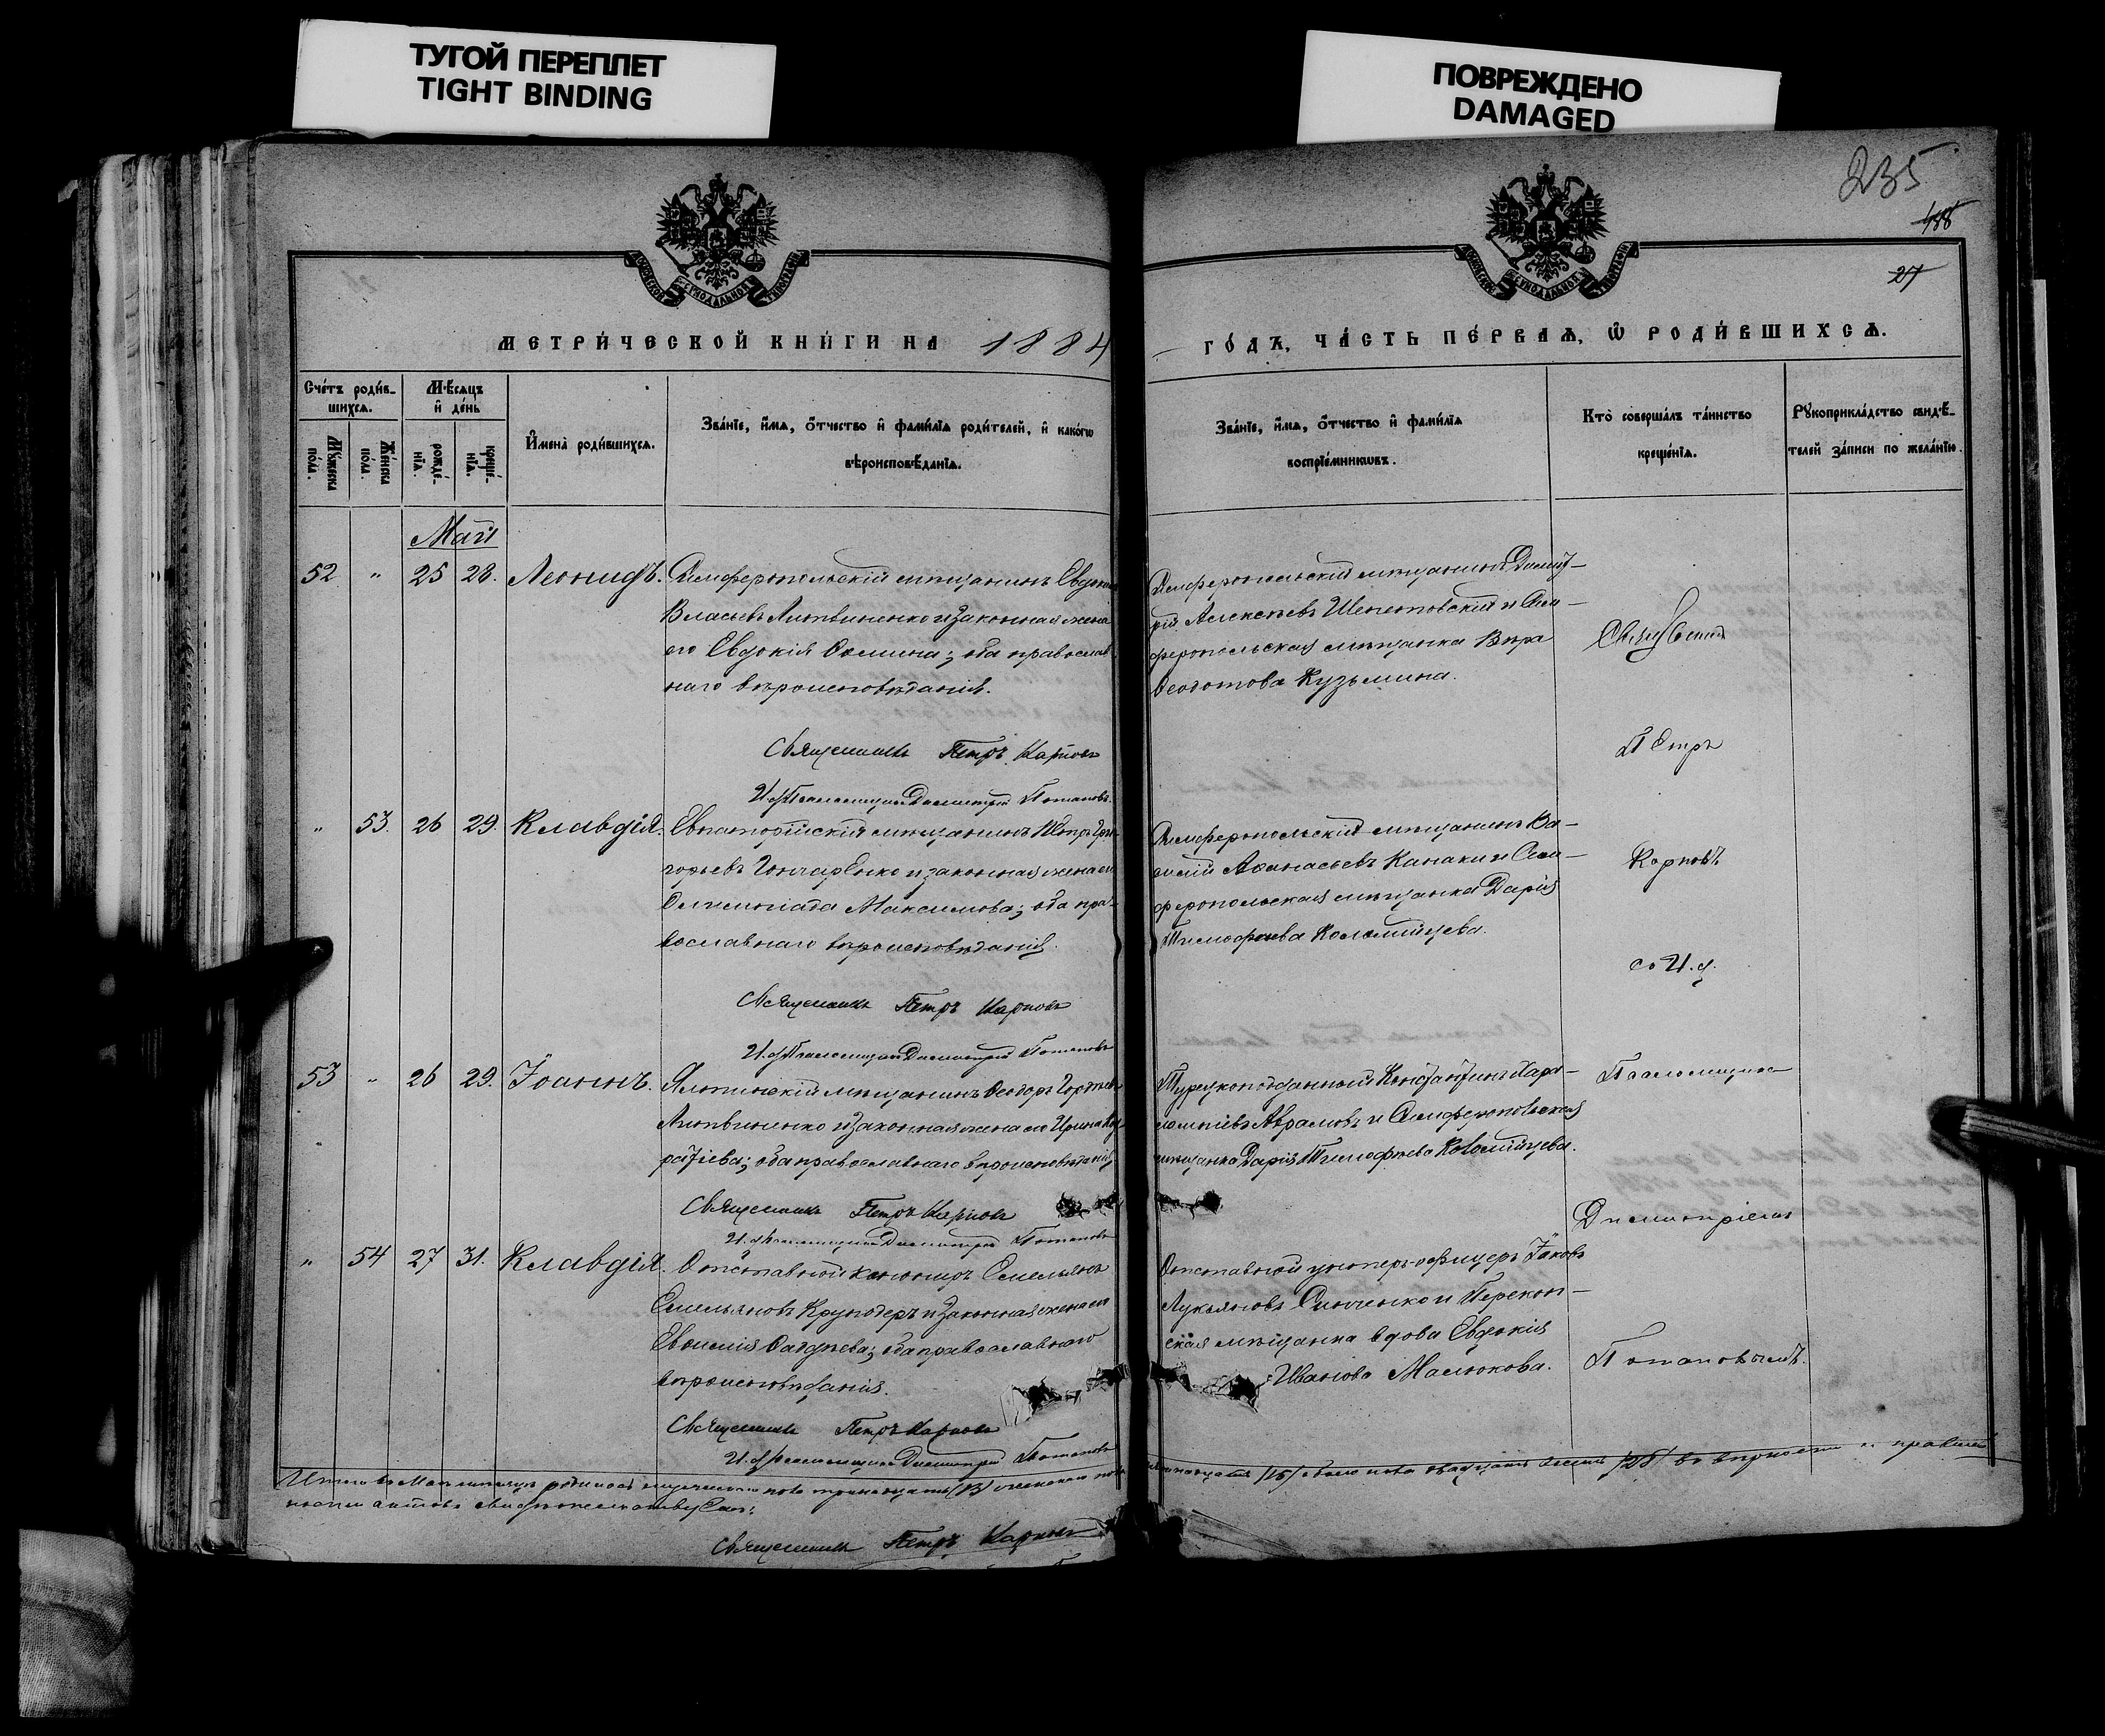 ТУГОЙ ПЕРЕПЛЕТ
TIGHT BINDING
ПОВРЕЖДЕНО
DAMAGED
235
188
27
МОСКОВСКОЙ СѴНОДАЛЬНОЙ ТИПОГРАФІИ
МОСКОВСКОЙ СѴНОДАЛЬНОЙ ТИПОГРАФІИ
МЕТРИ́ЧЕСКОЙ КНИ́ГИ НА 1884
ГО́ДЪ, ЧА́СТЬ ПЕ́РВАѦ, Ѡ РОДИ́ВШИХСѦ.
Сче́тъ роди́в-
шихсѧ.
Мꙋ́жеска по́ла.
Же́нска по́ла.
Мѣ́сѧцъ
и҆ де́нь
рожде́-
нїѧ.
креще́-
нїѧ.
И҆мена̀ роди́вшихсѧ.
Зва́нїе, и҆́мѧ, ѻ҆́тчество и҆ фами́лїѧ роди́телей, и҆ како́гѡ
вѣроисповѣ́данїѧ.
Зва́нїе, и҆́мѧ, ѻ҆́тчество и҆ фами́лїѧ
воспрїе́мникѡвъ.
Кто̀ соверша́лъ та́инство
креще́нїѧ.
Рꙋкоприкла́дство свидѣ́-
телей за́писи по жела́нїю.
Май
52 " 25 28. Леонидъ.
Симферопольскій мѣщанинъ Евдоким
Власьевъ Литвиненко и законная жена
его Евдокія Фомина; оба православ-
наго вѣроисповѣданія.
Священникъ Петръ Карповъ
И. д. Псаломщика Димитрій Потаповъ.
Симферопольскій мѣщанинъ Димит-
рій Алексѣевъ Шепетовскій и Сим-
феропольская мѣщанка Вѣра
Ѳеодотова Кузьмина.
" 53. 26 29. Клавдія.
Евпаторійскій мѣщанинъ Петръ Гри-
горьевъ Гончаренко и законная жена его
Олимпіада Максимова; оба пра-
вославнаго вѣроисповѣданія.
Священникъ Петръ Карповъ
И. д. Псаломщика Димитрій Потаповъ
Симферопольскій мѣщанинъ Ва-
силій Аѳанасьевъ Канаки и Сим-
феропольская мѣщанка Дарія
Тимофѣева Коломійцева.
53 " 26 29. Іоаннъ.
Ялтинскій мѣщанинъ Ѳеодоръ
Литвиненко и законная жена его Ирина
оба православнаго вѣроисповѣданія
Священникъ Петръ Карповъ
И. д. Псаломщика Димитрій Потаповъ
Турецкоподданный Константинъ Хара-
лампіевъ Аврамовъ и Симферопольская
мѣщанка Дарія Тимофѣева Коломійцева.
" 54 27 31. Клавдія.
Отставной канониръ Емельянъ
Емельяновъ и законная жена его
Евѳимія Ѳаддѣева; оба православнаго
вѣроисповѣданія.
Священникъ Петръ Карповъ
И. д. Псаломщика Димитрій Потаповъ
Отставной унтеръ-офицеръ Іаковъ
Лукьяновъ Синченко и Перекоп-
ская мѣщанка вдова Евдокія
Иванова Малюкова.
Священникъ
Петръ
Карповъ
съ И. д.
Псаломщика
Димитріемъ
Потаповымъ.
Итого въ Маѣ мѣсяцѣ родилось мужескаго пола тринадцать (13) женскаго пола
пятнадцать /15/ обоего пола двадцать восемь /28/ въ вѣрности и правиль-
ности актовъ свидѣтельствуемъ:
Священникъ Петръ Карповъ